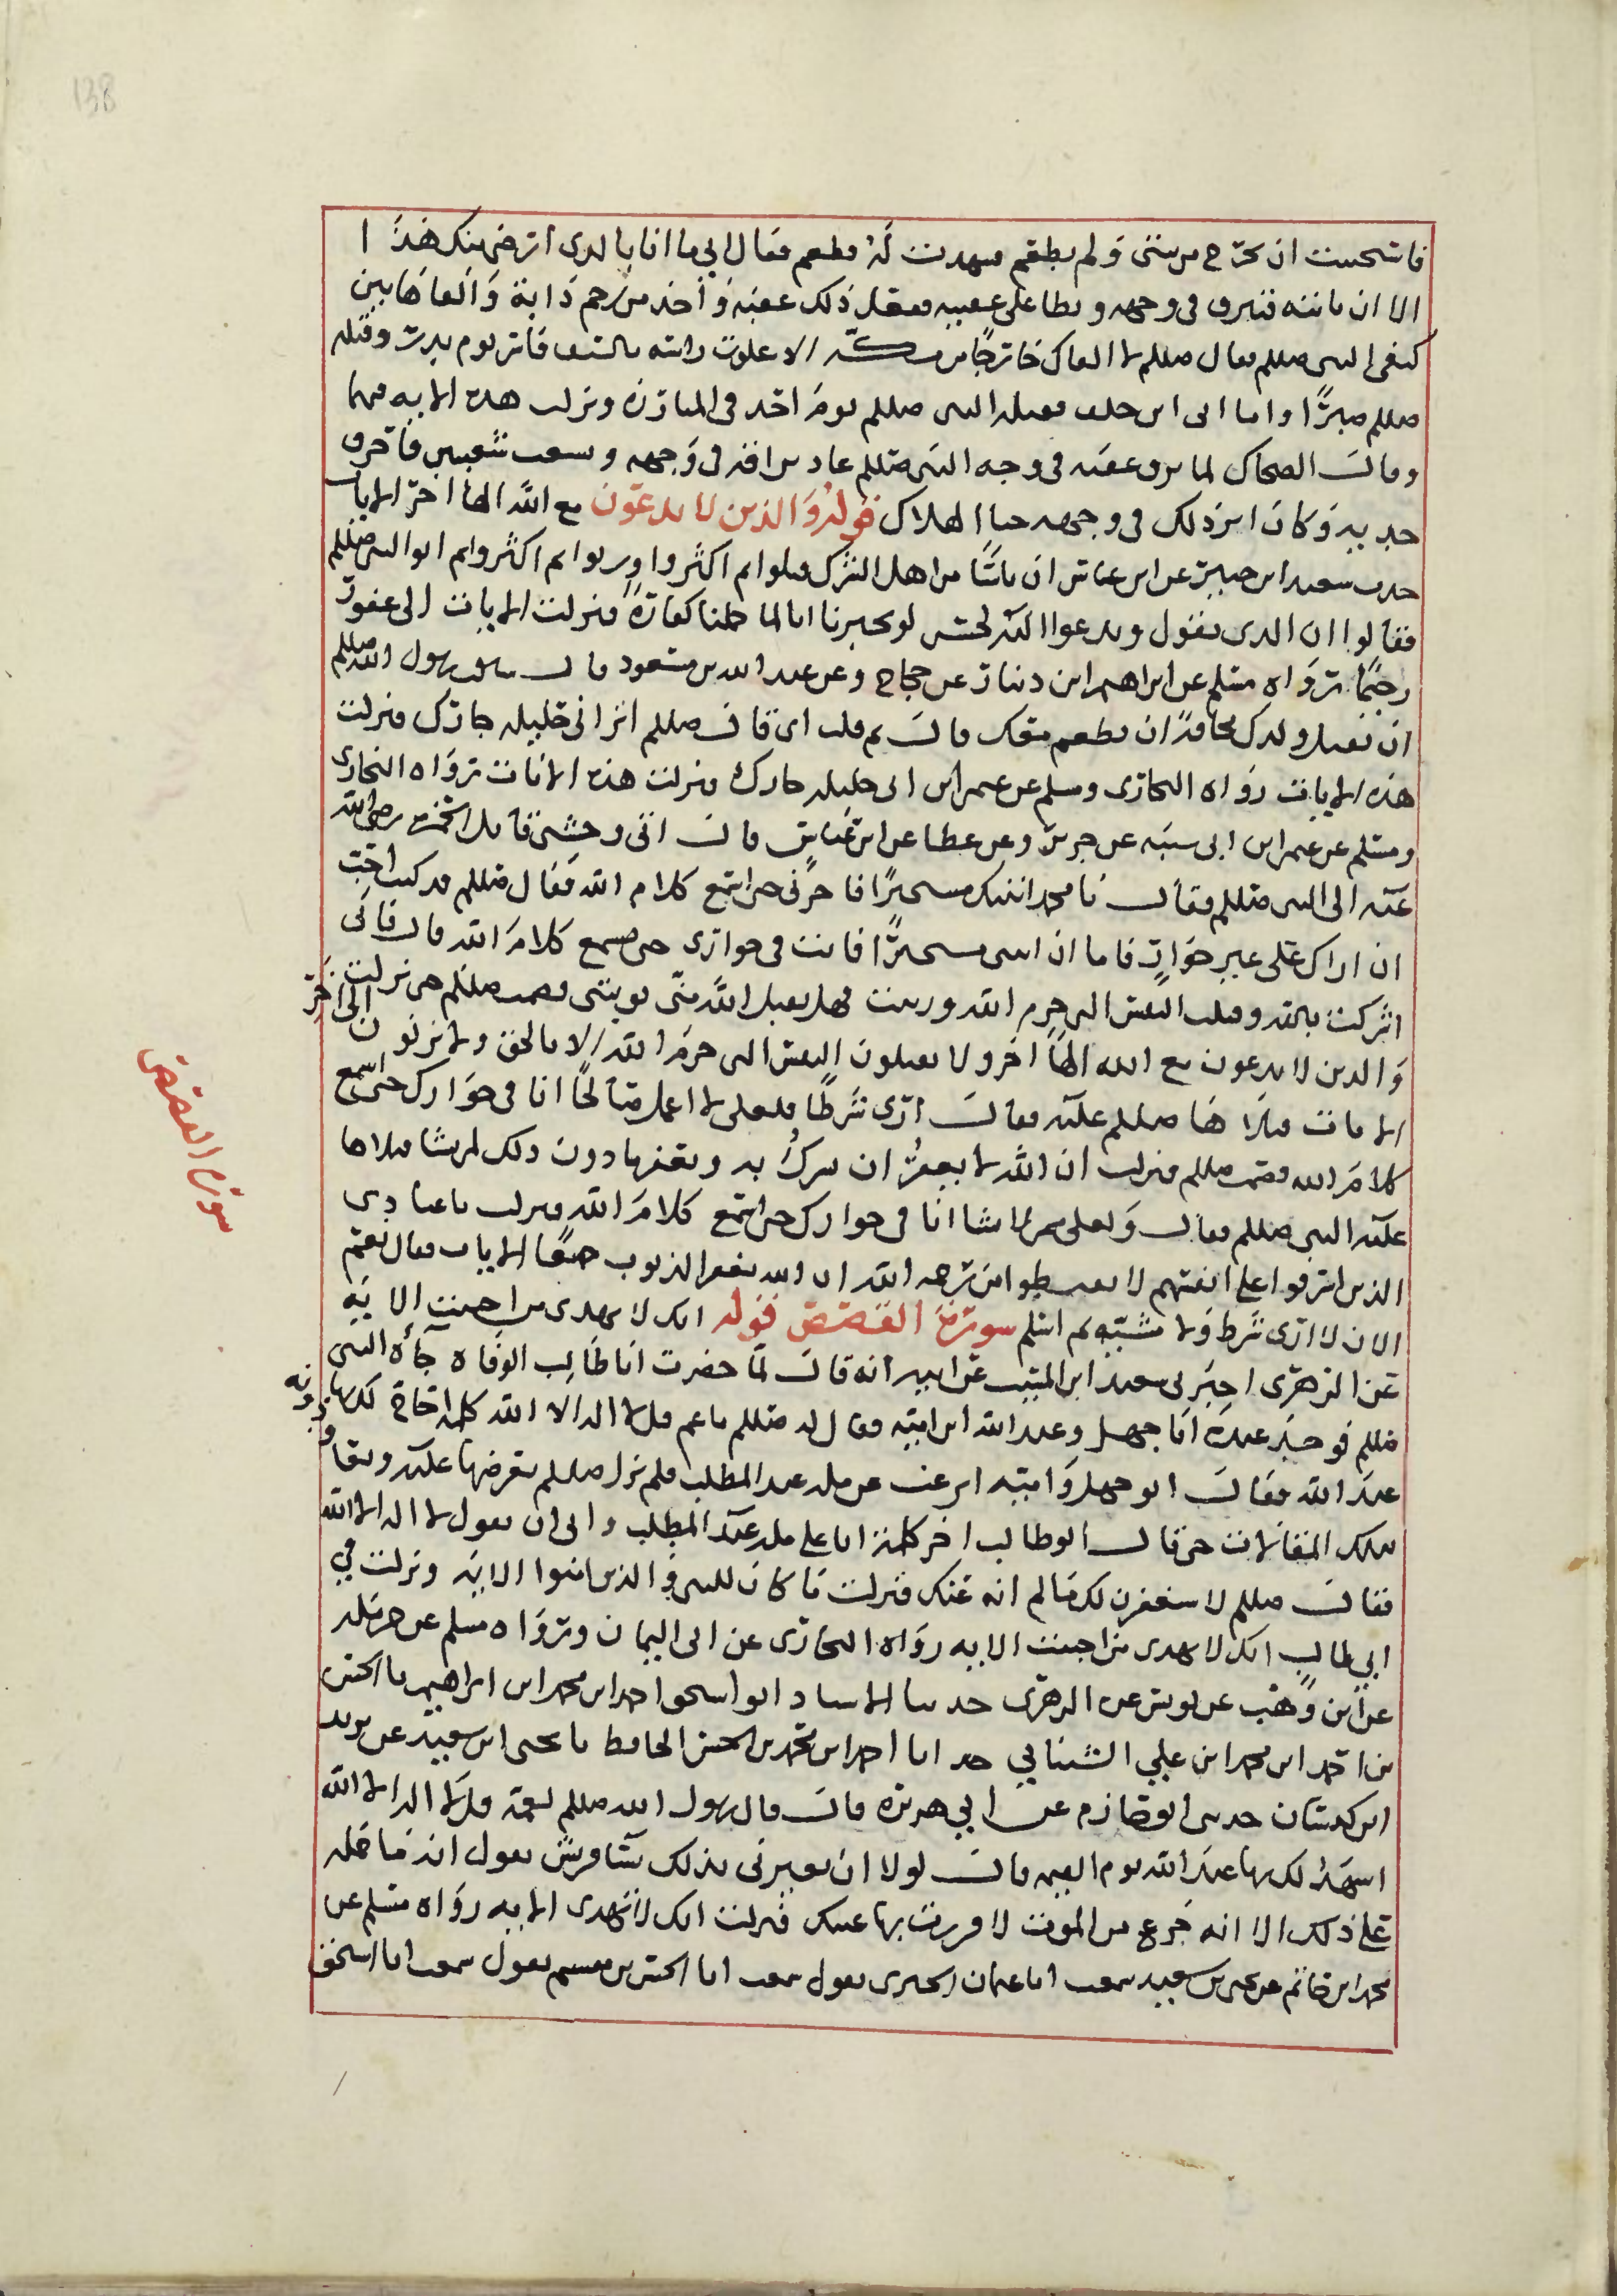 138
فاستحييت ان يخرج من بيتى ولم يطعم فشهدت له فطعم فقال ابي ما انا بالذى ارضى منك هذا ا
الا ان تاتيه فتبزق فى وجهه وتطا على عقبيه ففعل ذلك عقبة واخذ من رحم دابة والقاها بين
كتفى النبى صللم فقال صللم لا القاك خارجا من مكة الا علوت راسك بالسيف فاسر يوم بدر وقتله
صللم صبرًا واما ابى ابن خلف فقتله النبى صللم يوم احد فى المبارزة ونزلت هذه الاية فيهما
وقال الضحاك لما بزق عقبه فى وجه النبى صللم عاد بزاقه فى وجهه وتشعب شعبين فاحرق
خديه وكان اثر ذلك فى وجهه حتى الهلاك قوله والذين لا يدعون مع الله الها اخر الايات
حدث سعيد ابن جبير عن ابن عباس ان ناسًا من اهل الشرك قتلوا ثم اكثروا وزنوا ثم اكثروا ثم اتوا النبى صللم
فقالوا ان الذى تقول وتدعوا اليه لحسن لو تخبرنا ان لما عملنا كفارة فنزلت الايات الى غفورً
رحيمًا رواه مسلم عن ابراهيم ابن دينار عن حجاج وعن عبد الله بن مسعود قال سالت رسول الله صللم
ان تقتل ولدك مخافة ان يطعم معك قال ثم قلت اى قال صللم ان تزانى حليلة جارك فنزلت
هذه الايات رواه البخارى ومسلم عن عمر ابن ابى حليله جارك فنزلت هذه الايات رواه البخارى
ومسلم عن عمر ابن ابى شيبه عن جرير وعن عطا عن ابن عباس قال اتى وحشى قاتل حمزة رضى الله
عنه الى النبى صللم فقال يا محمد اتيتك مستجيرًا فاجرنى حتى اسمع كلام الله فقال صللم قد كنت احب
ان اراك على غير جوار فاما اذ اتيتنى مستجيرًا فانت فى جوارى حتى تسمع كلام الله قال فانى
اشركت بالله وقتلت النفس التى حرم الله وزنيت فهل يقبل الله منى توبتى فصمت صللم حتى نزلت
والذين لا يدعون مع الله الهًا اخر ولا يقتلون النفس التى حرم الله الا بالحق ولا يزنون الى اخر
الايات فتلاها صللم عليه فقال ارى شرطًا فلعلى لا اعمل صالحًا انا فى جوارك حتى اسمع
كلام الله فصمت صللم فنزلت ان الله لا يغفر ان يشرك به ويغفر ما دون ذلك لمن يشا فتلاها
عليه النبى صللم فقال ولعلى ممن لا يشا انا فى جوارك حتى اسمع كلام الله فنزلت يا عبادى
الذين اسرفوا على انفسهم لا تقنطوا من رحمه الله ان الله يغفر الذنوب جميعًا الايات فقال نعم
الان لا ارى شرط ولا مشيئة ثم اسلم سورة القصص قوله انك لا تهدى من احببت الاية
عن الزهرى اخبرنى سعيد ابن المسيب عن ابيه انه قال لما حضرت ابا طالب الوفاه جاه النبى
صللم فوجد عنده ابا جهل وعبد الله ابن اميه فقال له صللم يا عم قل لا اله الا الله كلمة احاج لك بها
عند الله فقال ابو جهل واميه اترغب عن مله عبد المطلب فلم يزل صللم يعرضها عليه ويعاودونه
بتلك المقالات حتى قال ابو طالب اخر كلمة انا على مله عبد المطلب وابى ان يقول لا اله الا الله
فقال صللم لاستغفرن لك ما لم انه عنك فنزلت ما كان للنبى والذين امنوا الايه ونزلت في
ابي طالب انك لا تهدى من احببت الايه رواه البخارى عن ابى اليمان ورواه مسلم عن حرمله
عن ابن وهب عن يونس عن الزهرى حدثنا الاستاد ابو اسحق احمد ابن محمد ابن ابراهيم نا الحسن
بن احمد ابن محمد ابن علي الشيباني حد انا احمد ابن محمد بن الحسن الحافظ نا يحيى ابن سعيد عن يزيد
ابن كيسان حدثنى ابو حازم عن ابي هريره قال قال رسول الله صللم لعمه قل لا اله الا الله
اشهد لك بها عند الله يوم القيمه قال لولا ان تعيرنى بذلك نسا قريش يقول انه ما حمله
على ذلك الا انه جزع من الموت لاقررت بها عينك فنزلت انك لا تهدى الايه رواه مسلم عن
محمد ابن حاتم عن يحيى بن سعيد سمعت ابا عثمان الحيرى يقول سمعت ابا الحسن بن مقسم يقول سمعت ابا اسحق
سورة القصص